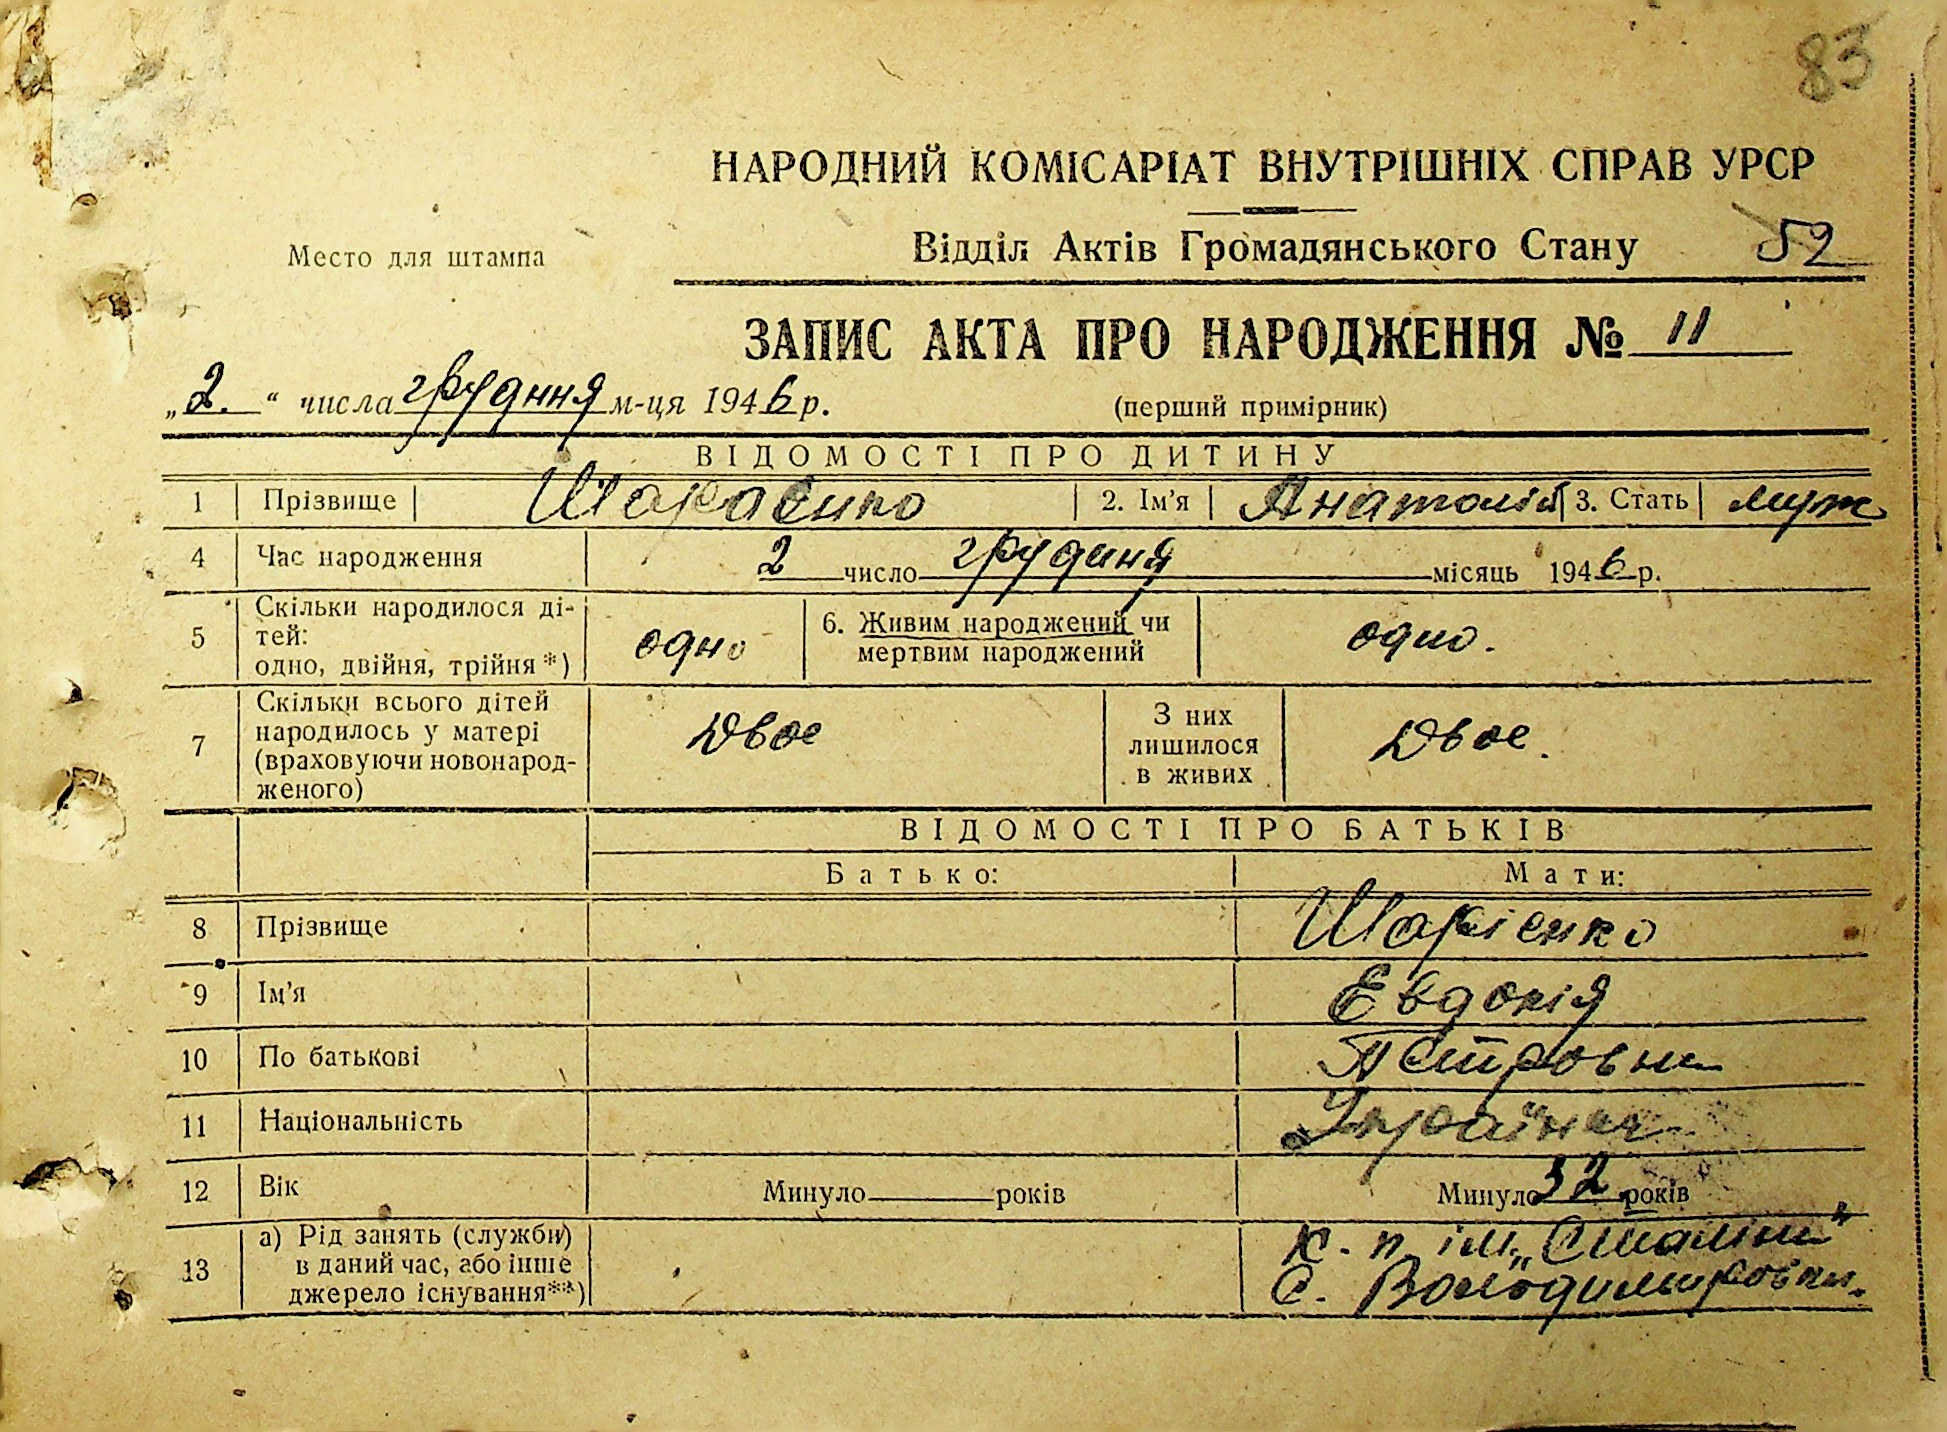 83
НАРОДНИЙ КОМІСАРІАТ ВНУТРІШНІХ СПРАВ УРСР
Место для штампа
Відділ Актів Громадянського Стану 52
ЗАПИС АКТА ПРО НАРОДЖЕННЯ № 11
„2.“ числа грудння м-ця 1946 р. (перший примірник)
ВІДОМОСТІ ПРО ДИТИНУ
1 Прізвище 2. Ім'я Анатолій 3. Стать муж
4 Час народження 2 число грудння місяць 1946 р.
5 Скільки народилося ді-
тей:
одно, двійня, трійня*) одно 6. Живим народжений чи
мертвим народжений одно.
7 Скільки всього дітей
народилось у матері
(враховуючи новонарод-
женого) Двое З них
лишилося
в живих Двое.
ВІДОМОСТІ ПРО БАТЬКІВ
Батько: Мати:
8 Прізвище
9 Ім'я Евдокія
10 По батькові Петровна
11 Національність Українка
12 Вік Минуло років Минуло 32 років
13 а) Рід занять (служби)
в даний час, або інше
джерело існування**)
к-п. ім. „Сталіна“
С. Володимировка.